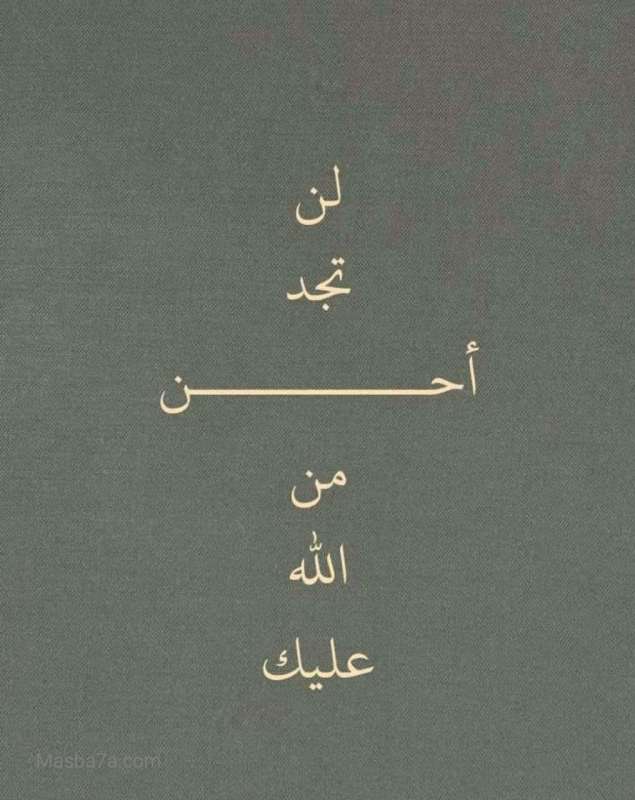 لن
تجد
أحـــــــــــــــن
من
الله
عليك
Masba7a.com